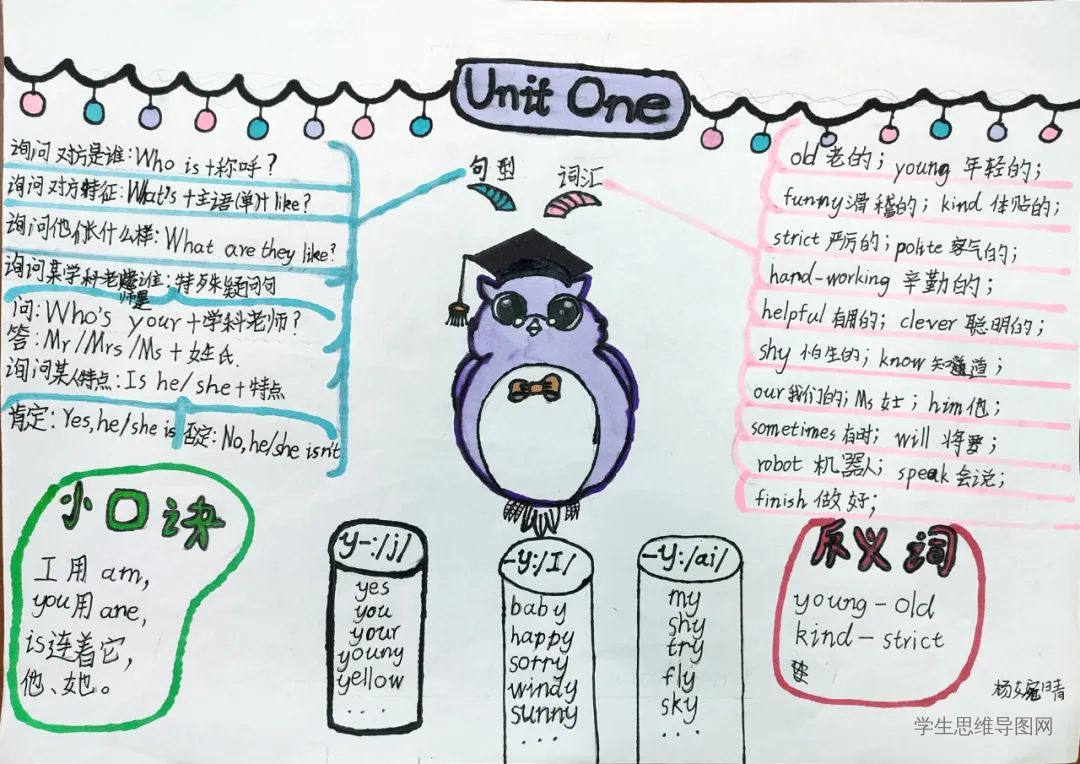 Unit One
句型
词汇
询问对方是谁:Who is +称呼?
询问对方特征:What's +主语(单)+ like?
询问他们长什么样:What are they like?
询问某学科老师是谁;特殊疑问句
问:Who's your +学科老师?
答:Mr/Mrs/Ms + 姓氏.
询问某人特点:Is he/she +特点
肯定:Yes,he/she is 否定:No,he/she isn't
old 老的;young 年轻的;
funny 滑稽的;kind 体贴的;
strict 严厉的;polite 客气的;
hand-working 辛勤的;
helpful 有用的;clever 聪明的;
shy 怕生的;know 知道;
our 我们的;Ms 女士;him 他;
sometimes 有时;will 将要;
robot 机器人;speak 会说;
finish 做好;
小口诀
I 用 am,
you用 are,
is连着它,
他、她。
y-:/j/
yes
you
your
young
yellow
...
-y:/I/
baby
happy
sorry
windy
sunny
...
-y:/ai/
my
shy
try
fly
sky
...
反义词
young-old
kind-strict
学生思维导图网